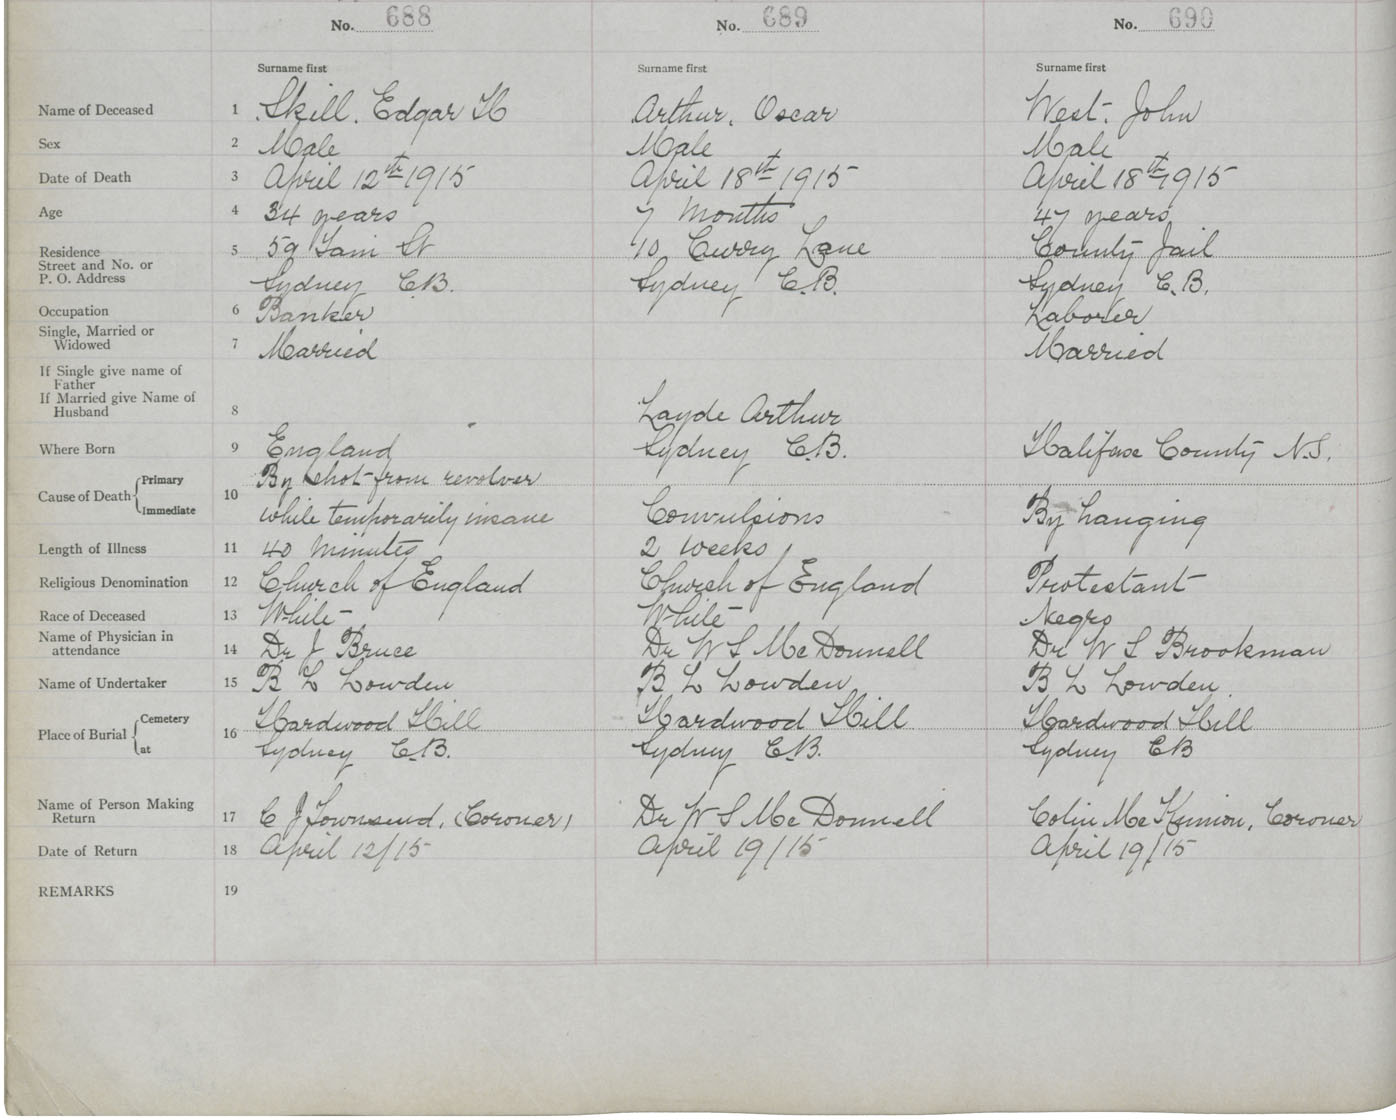 No. 688 No. 689 No. 690
Surname first Surname first Surname first
Name of Deceased 1 Skill. Edgar H Arthur. Oscar West. John
Sex 2 Male Male Male
Date of Death 3 April 12th 1915 April 18th 1915 April 18th 1915
Age 4 34 years 7 Months 47 years
Residence 5 59 St 10 Curry Lane County Jail
Street and No. or
P. O. Address Sydney C.B. Sydney C.B. Sydney C.B.
Occupation 6 Banker Laborer
Single, Married or
Widowed 7 Married Married
If Single give name of
Father
If Married give Name of
Husband 8 Layde Arthur
Where Born 9 England Sydney C.B. Halifax County N.S.
Cause of Death Primary 10 By shot from revolver
Immediate while temporarily insane Convulsions By hanging
Length of Illness 11 40 Minutes 2 weeks
Religious Denomination 12 Church of England Church of England Protestant
Race of Deceased 13 White White Negro
Name of Physician in
attendance 14 Dr J Bruce Dr W S McDonnell Dr W S Brookman
Name of Undertaker 15 B L Lowden B L Lowden B L Lowden.
Place of Burial Cemetery 16 Hardwood Hill Hardwood Hill Hardwood Hill
at Sydney C.B. Sydney C.B. Sydney CB
Name of Person Making
Return 17 C J Townsend. (Coroner) Dr W S McDonnell Colin McKinnon, Coroner
Date of Return 18 April 12/15 April 19/15 April 19/15
REMARKS 19